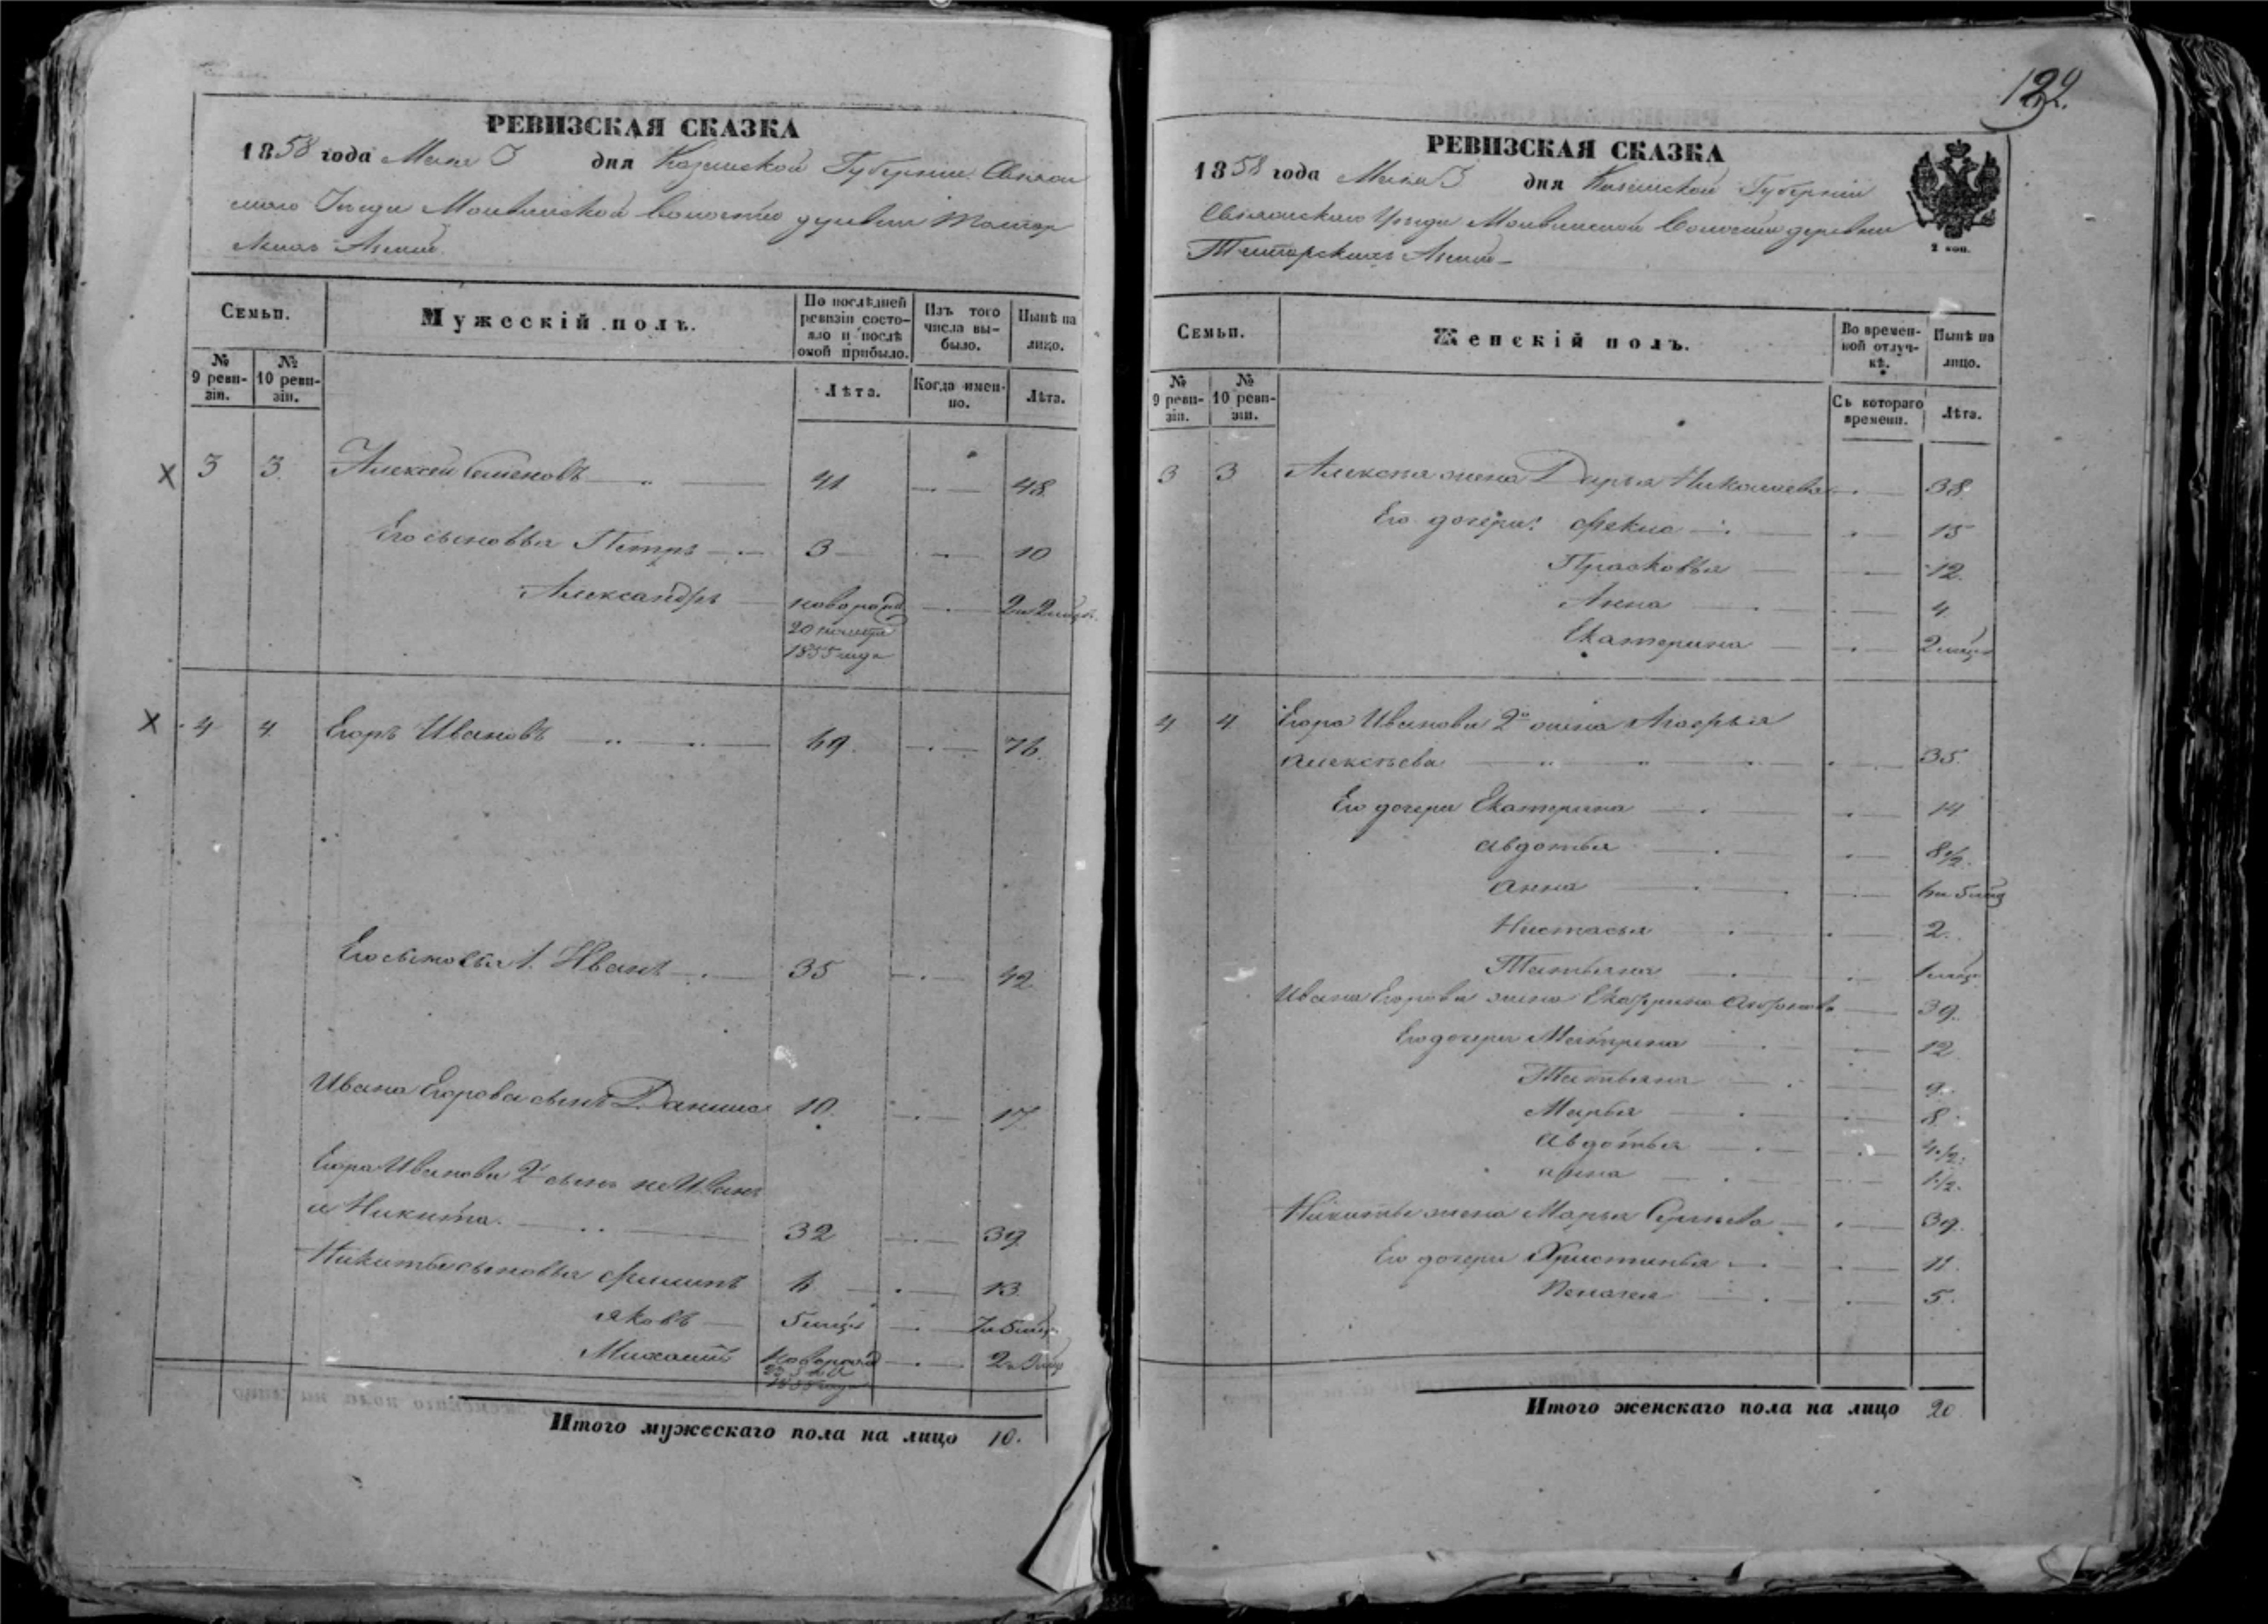 122.
РЕВИЗСКАЯ СКАЗКА
1858 года Мая 3 дня Казанской Губернiи Свiяж
скаго Уѣзда волости деревни Татар
скихъ
Семьи.
Мужескiй полъ.
По послѣдней ревизiи состояло и послѣ оной прибыло.
Изъ того числа выбыло.
Нынѣ на лицо.
№ 9 ревизiи.
№ 10 ревизiи.
Лѣта.
Когда именно.
Лѣта.
3 3. Алексѣй Семеновъ 41 48.
Его сыновья Петръ 3 10
Александръ новорожд 2 и 2 мѣсц.
20
1855 года
4 4. Егоръ Ивановъ 69. 76.
Его сыновья 1. Иванъ 35 42
Ивана Егорова сынъ Данила 10. 17.
Егора Иванова 2й сынъ не Иванъ
а Никита. 32 39.
Никиты сыновья Филипъ 6. 13.
Яковъ 5 мѣсц 7 и 5 мѣсц
Михаилъ новорожд 2
Итого мужескаго пола на лицо 10.
РЕВИЗСКАЯ СКАЗКА
1858 года Мая 3 дня Казанской Губернiи
Свiяжскаго Уѣзда волости деревни
Татарскихъ
2 коп.
Семьи.
Женскiй полъ.
Во временной отлучкѣ.
Нынѣ на лицо.
№ 9 ревизiи.
№ 10 ревизiи.
Съ котораго времени.
Лѣта.
3 3 Алексѣя жена Дарья Николаева 38.
Его дочери: Фекла 15
Прасковья 12.
Анна 4.
Екатерина 2 мѣсц
4 4. Егора Иванова 2я жена
Алексѣева 35.
Его дочери Екатерина 14
Авдотья 8 1/2.
Анна 6 и 5 мѣсц
Настасья 2.
Татьяна 1 мѣсц.
Ивана Егорова жена 39.
Его дочери Матрена 12
Татьяна 9.
Марья 8.
Авдотья 4 1/2.
Анна 1 1/2.
Никиты жена Марья Сергѣева 39.
Его дочери Христинья 11.
Пелагея 5.
Итого женскаго пола на лицо 20.